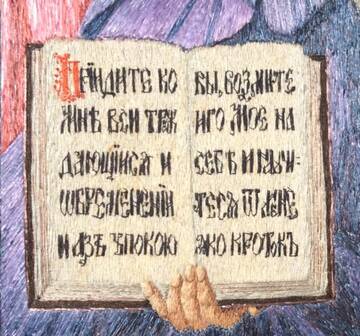 Прїидите ко
мнѣ вси трꙋж
дающїися и
ѡбремененїи
и азъ ꙋпокою
вы, возмите
иго мое на
себѣ и наꙋчи
тесѧ ѿ мене
ѧко кротокъ